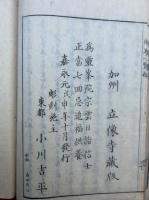 加州 立像寺藏版
為靈峯院宗雲日諧信士
正當七回忌追福拱養
嘉永元戊申年十月發行
彫刻施主
東都 小川吉平